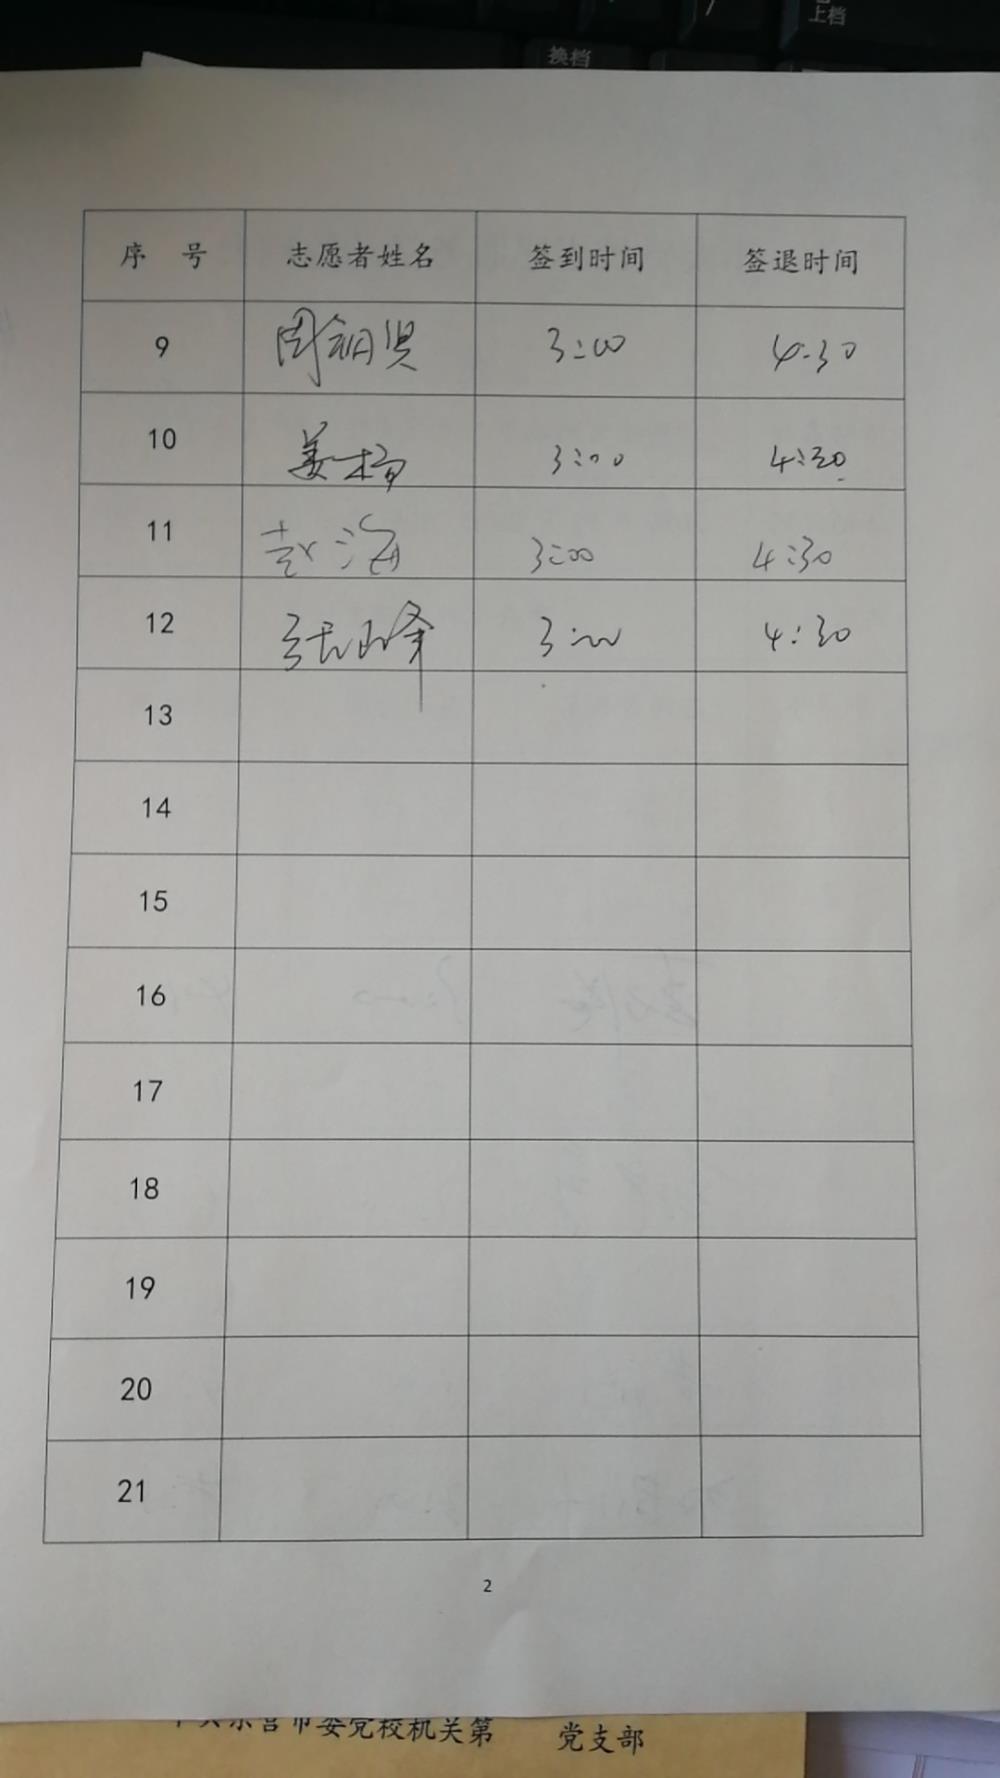 上档
换档
序 号 志愿者姓名 签到时间 签退时间
9 周 3:00 4:30
10 姜杨 3:00 4:30
11 赵海 3:00 4:30
12 张峰 3:00 4:30
13
14
15
16
17
18
19
20
21
2
东营市委党校机关第 党支部